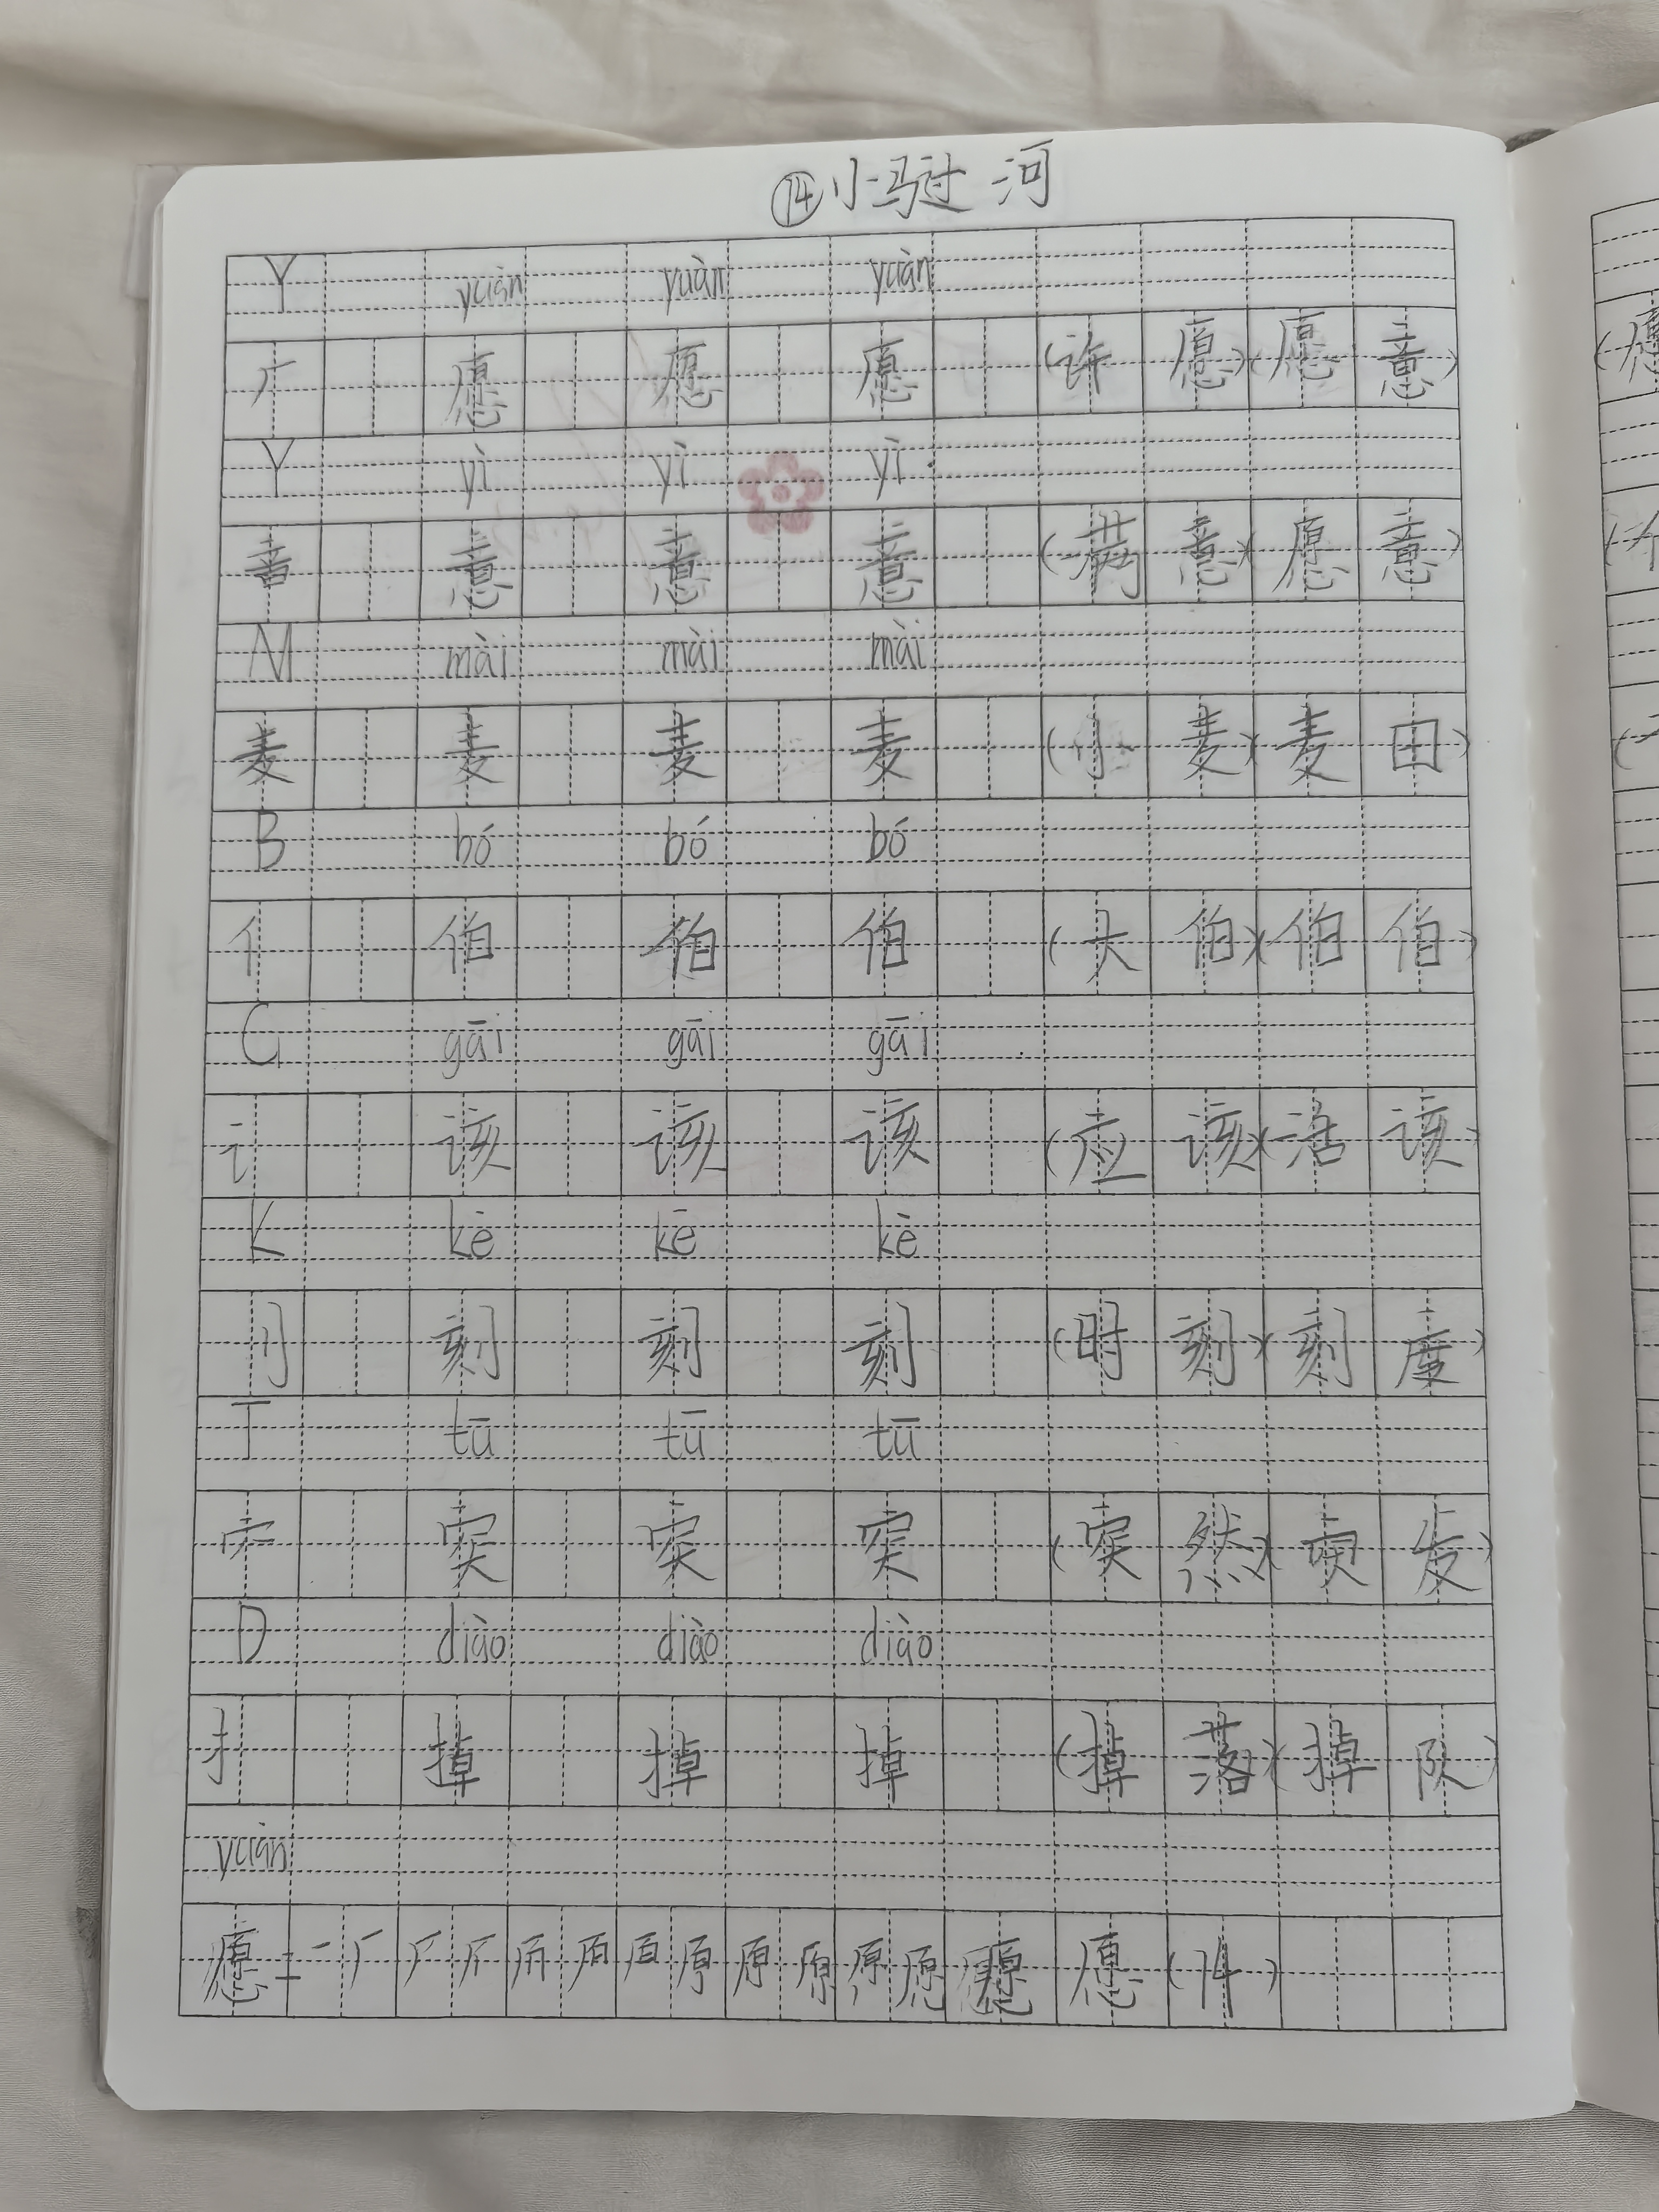 ⑭小马过河
Y yuàn yuàn yuàn
厂 愿 愿 愿 (许愿)(愿意)
Y yì yì yì
音 意 意 意 (满意)(愿意)
M mài mài mài
麦 麦 麦 麦 (小麦)(麦田)
B bó bó bó
亻 伯 伯 伯 (大伯)(伯伯)
G gāi gāi gāi
讠 该 该 该 (应该)(活该)
K kè kē kè
刂 刻 刻 刻 (时刻)(刻度)
T tū tū tū
穴 突 突 突 (突然)(突发)
D diào diào diào
扌 掉 掉 掉 (掉落)(掉队)
yuàn
愿 愿 (14)